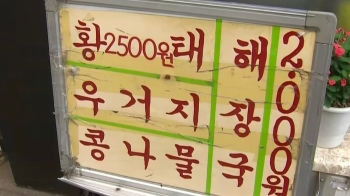 황2500원태
우거지
콩나물
해장국
2.000원